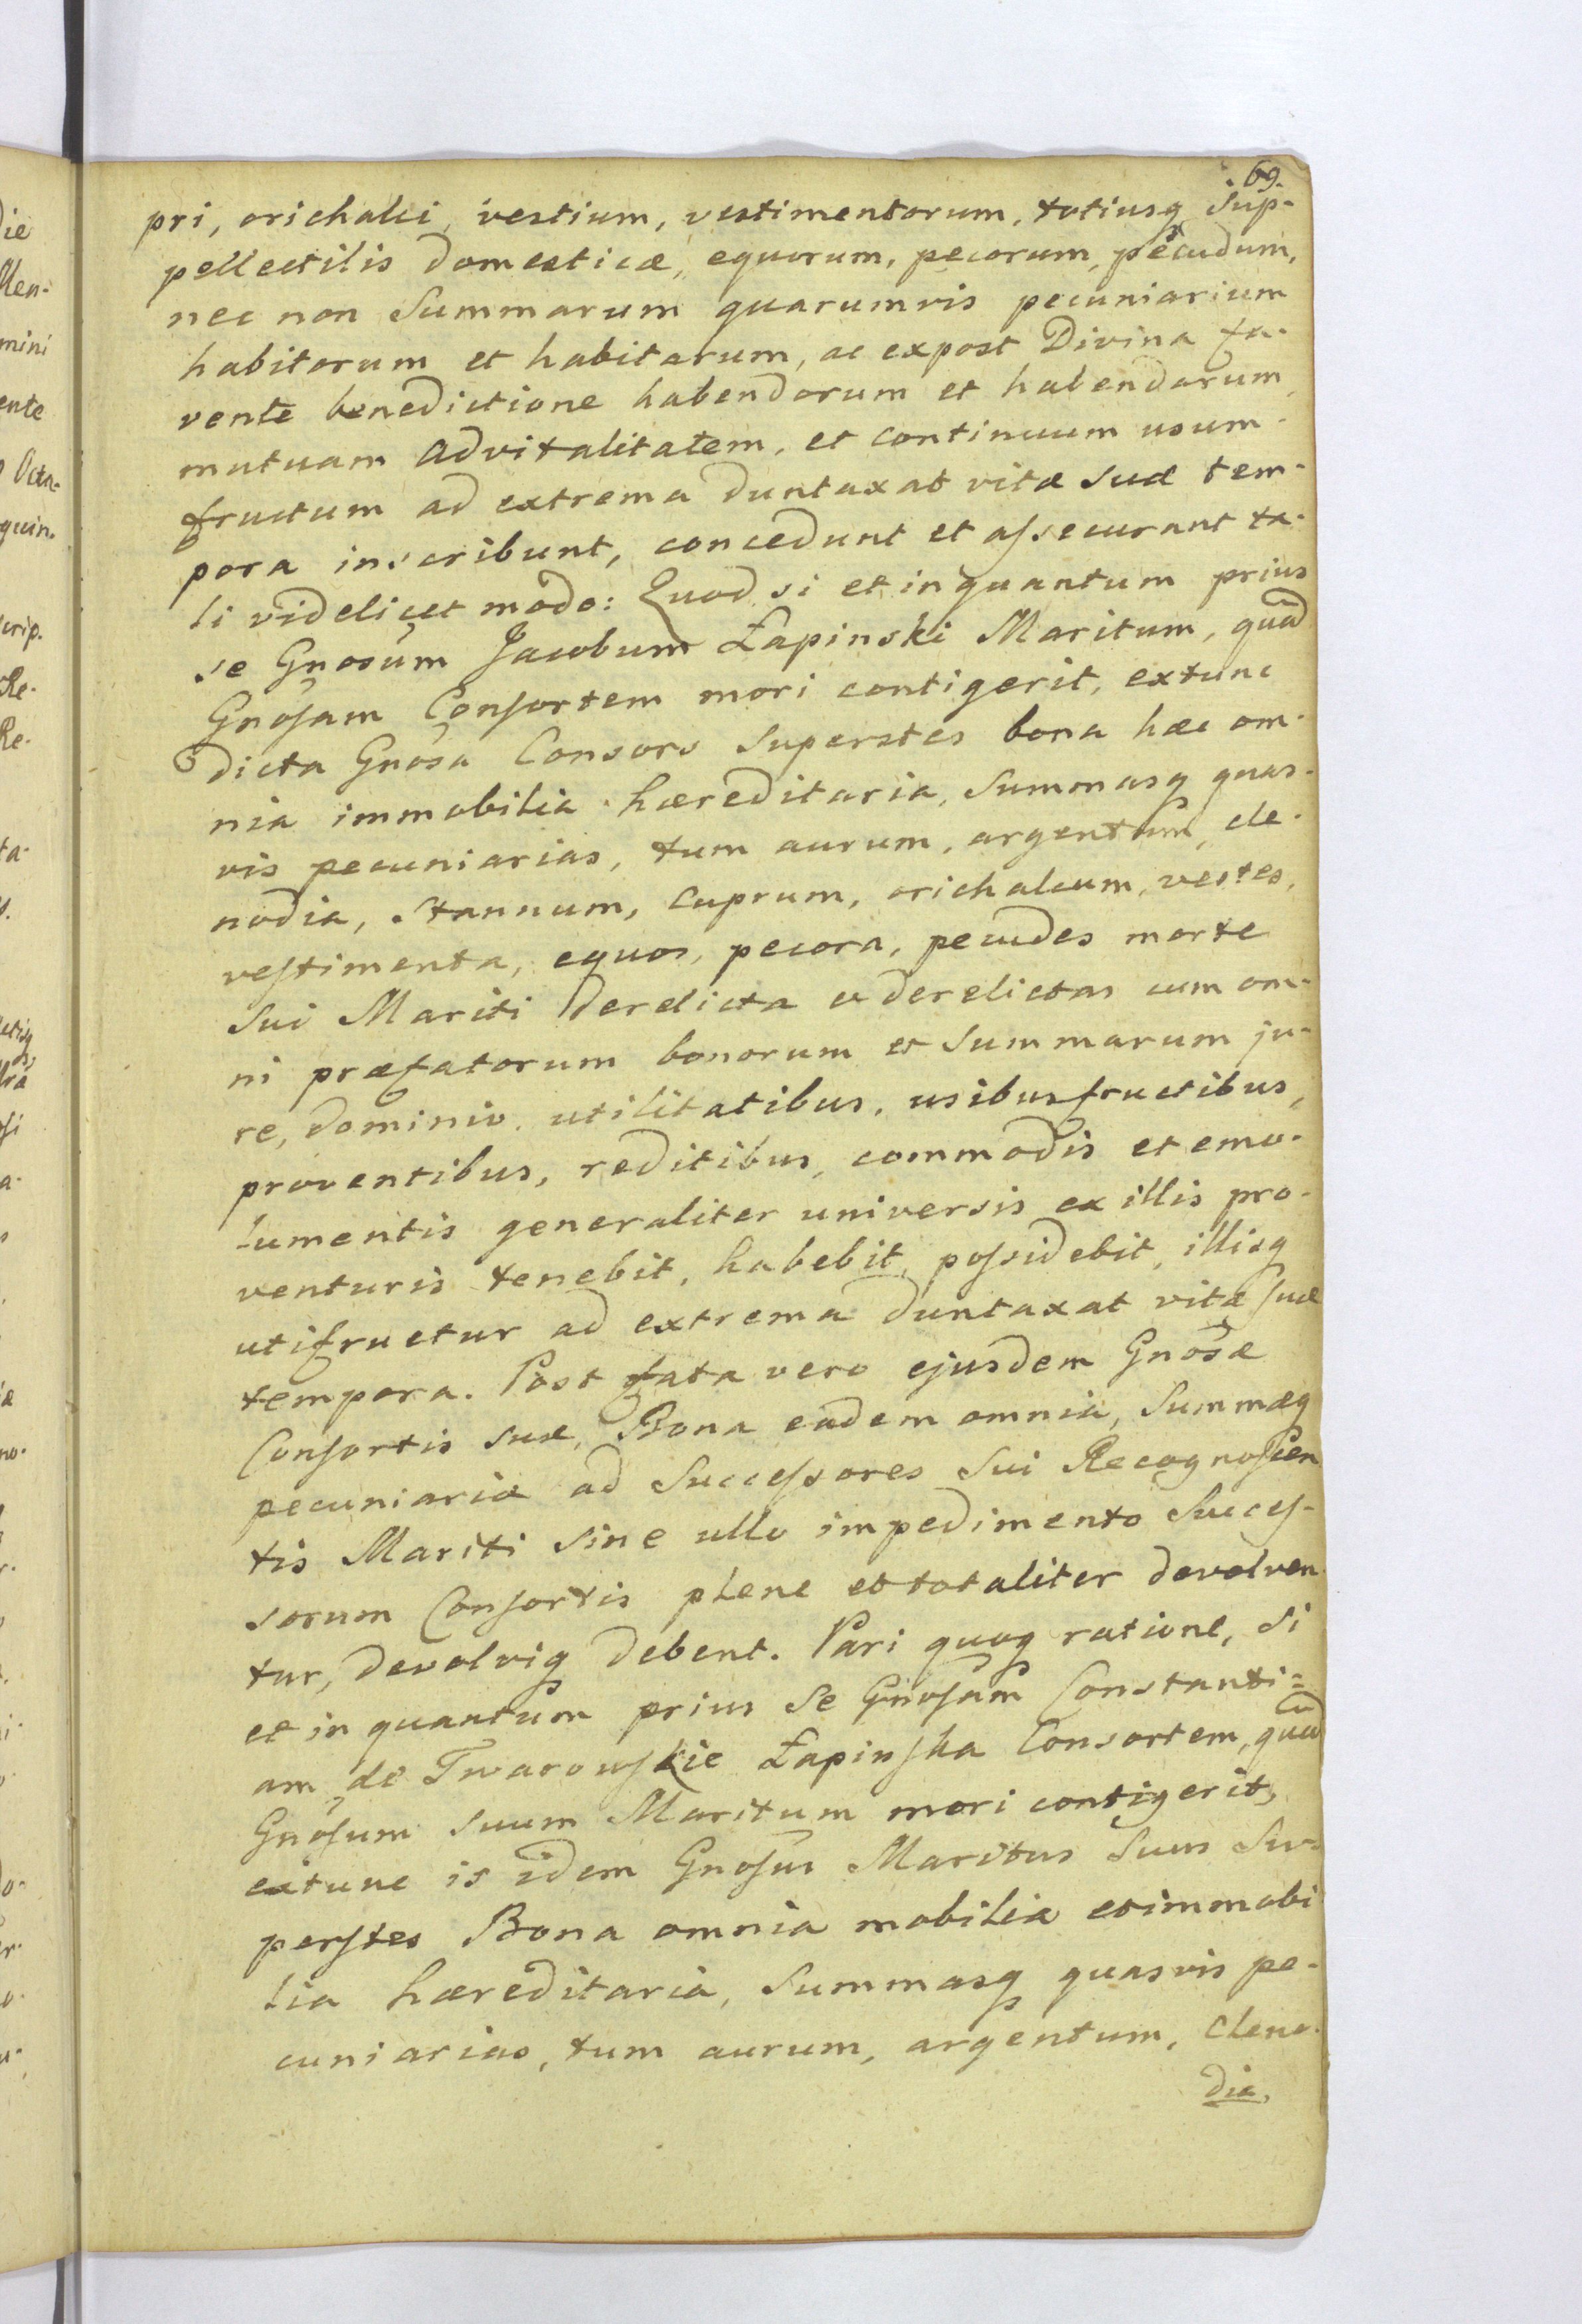 69.
pri, orichalci, vestium, vestimentorum, totiusq Sup-
pellectilis domesticæ, equorum, pecorum, pecudum,
nec non Summarum quarumvis pecuniarium
habitorum et habitarum, ac expost Divina fa-
vente benedictione habendorum et habendarum,
mutuam advitalitatem, et continuum usum-
fructum ad extrema duntaxat vitæ suæ tem-
pora inscribunt, concedunt et aſsecurant ta-
li videlicet modo: Quod si et inquantum prius
se Gnosum Jacobum Łapinski Maritum, quã
Gnoſam Conſortem mori contigerit, extunc
dicta Gnosa Consors Superstes bona hæc om-
nia immobilia hæreditaria, Summasq quas-
vis pecuniarias, tum aurum, argentum, cle-
nodia, Stannum, Cuprum, orichalcum, vestes,
veſtimenta, equos, pecora, pecudes morte
Sui Mariti derelicta et derelictas cum om-
ni præfatorum bonorum et Summarum ju-
re, dominio, utilitatibus, usibusfructibus,
proventibus, reditibus, commodis et emo-
lumentis generaliter universis ex illis pro-
venturis tenebit, habebit, poſsidebit, illisq
utifruetur ad extrema duntaxat vitæ ſuæ
tempora. Post fata vero ejusdem Gnosæ
Conſortis suæ, Bona eadem omnia, Summæq
pecuniariæ ad Succeſsores Sui Recognoſcen
tis Mariti Sine ullo impedimento Succeſ-
sorum Conſortis plene et totaliter devolven
tur, devolviq debent. Pari quoq ratione, Si
et in quantum prius Se Gnoſam Constanti=
am de Twarowſkie Łapinſka Consortem, quã
Gnoſum Suum Maritum mori contigerit,
extunc is idem Gnoſus Maritus Suus Su-
perſtes Bona omnia mobilia et immobi
lia hæreditaria, Summasq quasvis pe-
cuniarias, tum aurum, argentum, Cleno-
dia,